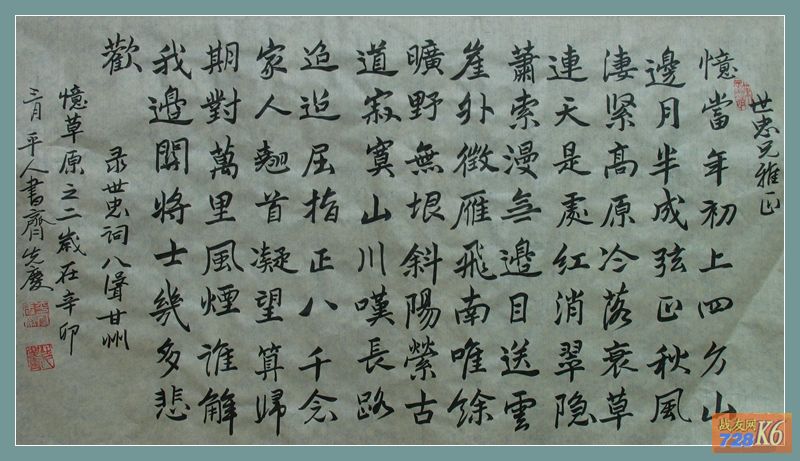 世忠兄雅正
憶當年初上四方山
邊月半成弦正秋風
淒緊高原冷落衰草
連天是處紅消翠隐
蕭索漫無邊目送雲
崖外徵雁飛南唯餘
曠野無垠斜陽縈古
道寂寞山川嘆長路
迢迢屈指正八千念
家人翹首凝望算歸
期對萬里風煙誰解
我邊關將士幾多悲
歡
录世忠詞八聲甘州
憶草原之二歲在辛卯
三月平人書齊先慶
战友网
728K6